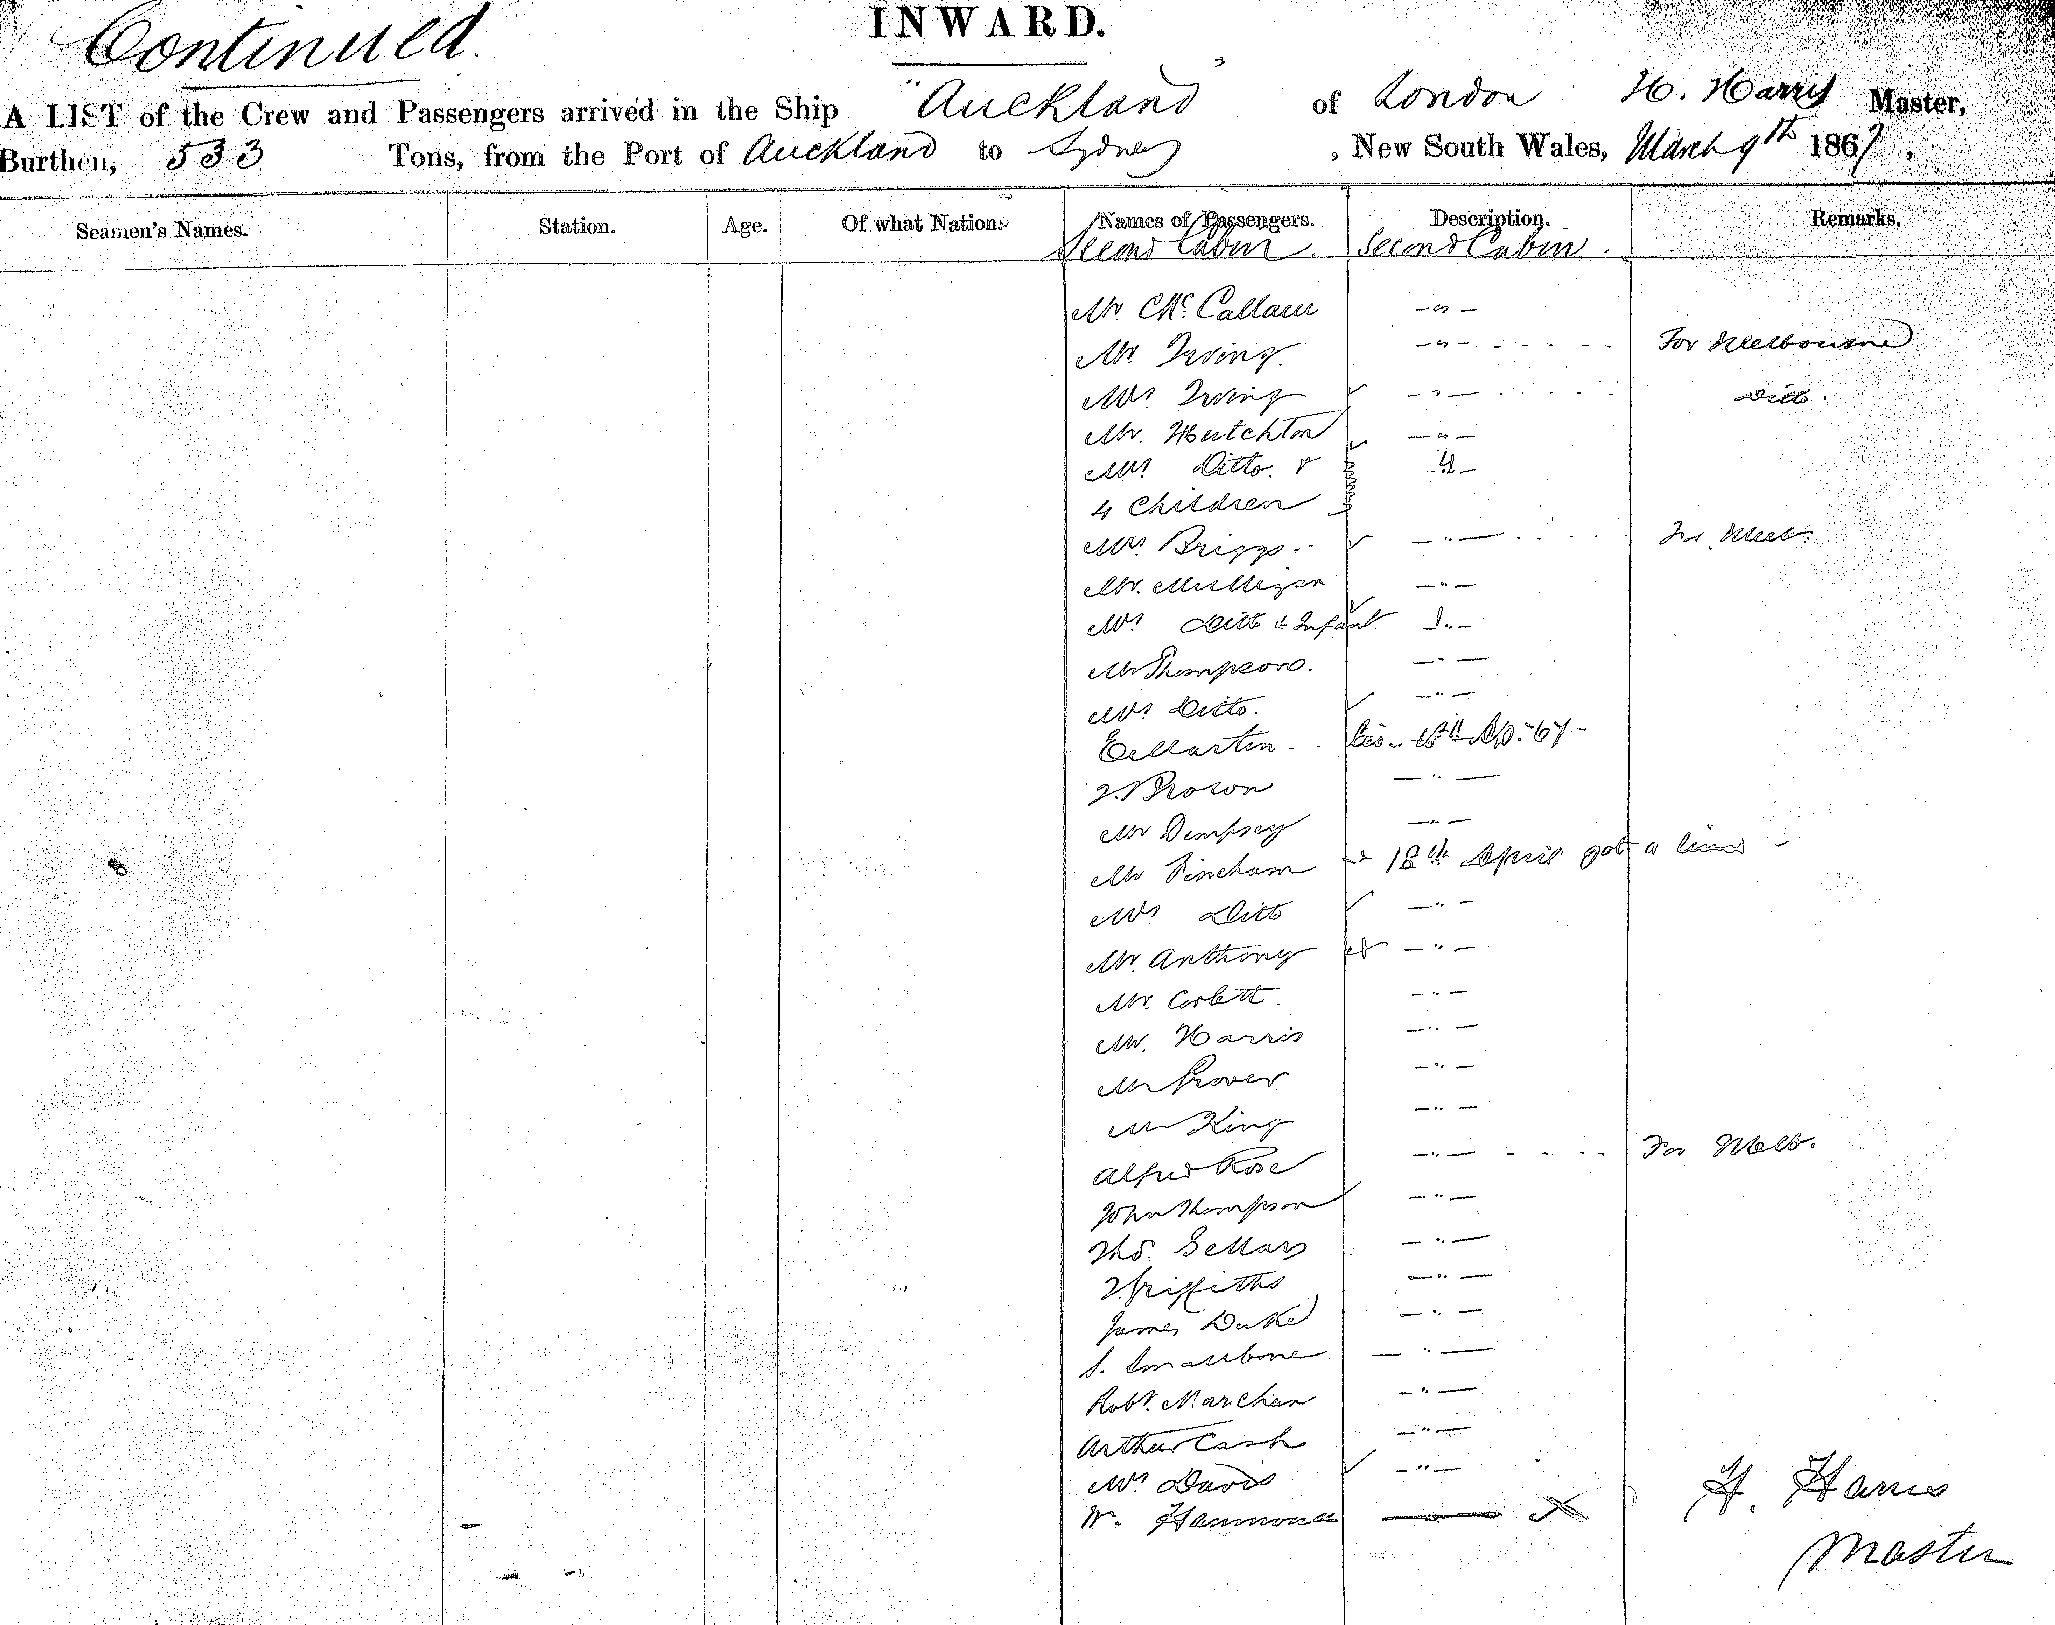 Continued.
INWARD.
A LIST of the Crew and Passengers arrived in the Ship "Auckland" of London H. Harris Master,
Burthen, 533 Tons, from the Port of Auckland to Sydney, New South Wales, March 9th 1867.
Seamen's Names. Station. Age. Of what Nation. Names of Passengers. Description. Remarks.
Second Cabin. Second Cabin.
Mr. Mc. Callum - " -
Mr. Irving - " - For Melbourne
Mrs Irving - " - Ditto.
Mr. Hutchton - " -
Mrs Ditto. &
4 Children
Mrs Briggs - " - For Melb.
Mr. Mulligan - " -
Mrs Ditto & Infant
Mr Thompson. - " -
Mrs Ditto. - " -
E Martin - 67 -
Brown - " -
Mr Dempsey - " -
Mr Pincham 18th April got a
Mrs Ditto - " -
Mr. Anthony - " -
Mr. Corbett - " -
Mr. Harris - " -
Mr - " -
Mr King - " -
Alfred Rose - " - For Melb.
John Thompson - " -
Thos. Sellars - " -
Griffiths - " -
James Duke - " -
S. Smallbone - " -
Robt. Marchan - " -
Arthur Cash - " -
Mrs Davis - " -
W. Hammond X
H. Harris
Master